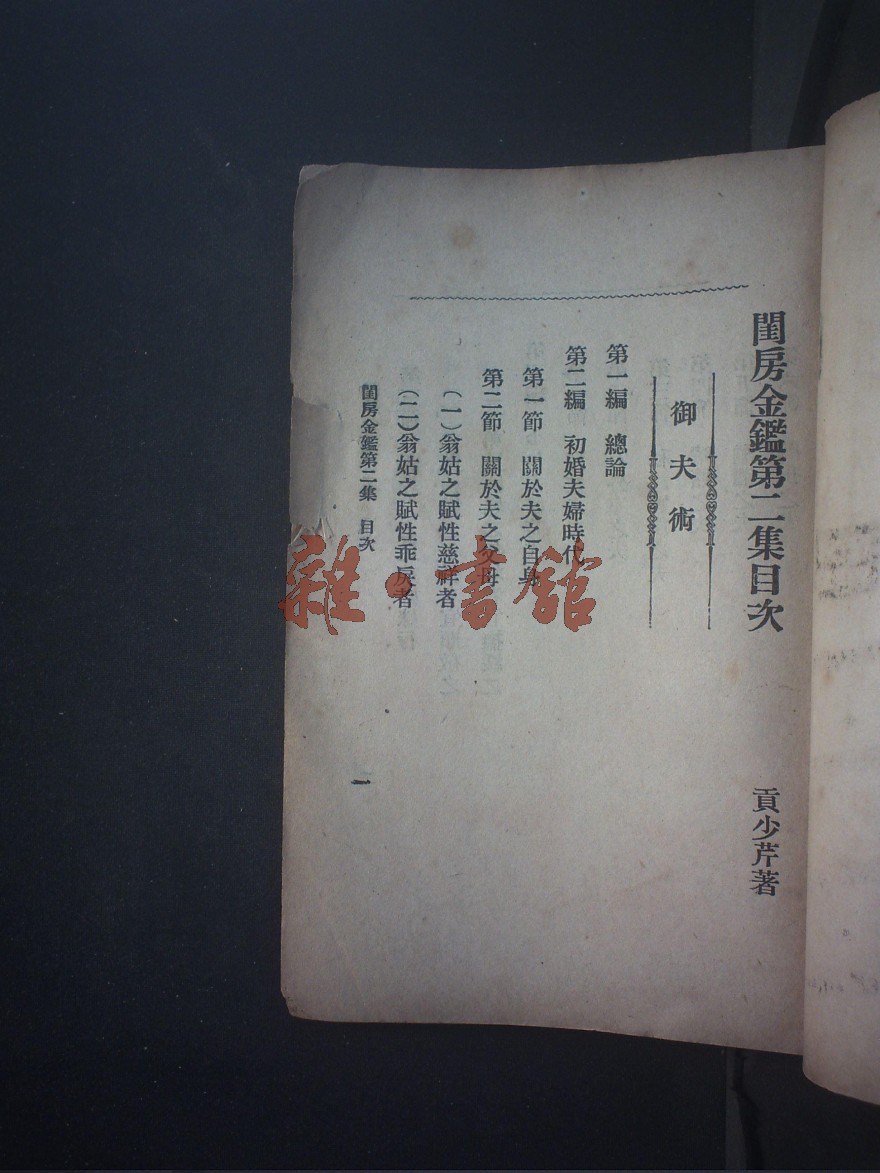 閨房金鑑第二集目次
貢少芹著
御夫術
第一編 總論
第二編 初婚夫婦時代
第一節 關於夫之自身
第二節 關於夫之父母
（一）翁姑之賦性慈祥者
（二）翁姑之賦性乖戾者
閨房金鑑第二集 目次
一
雜·書館